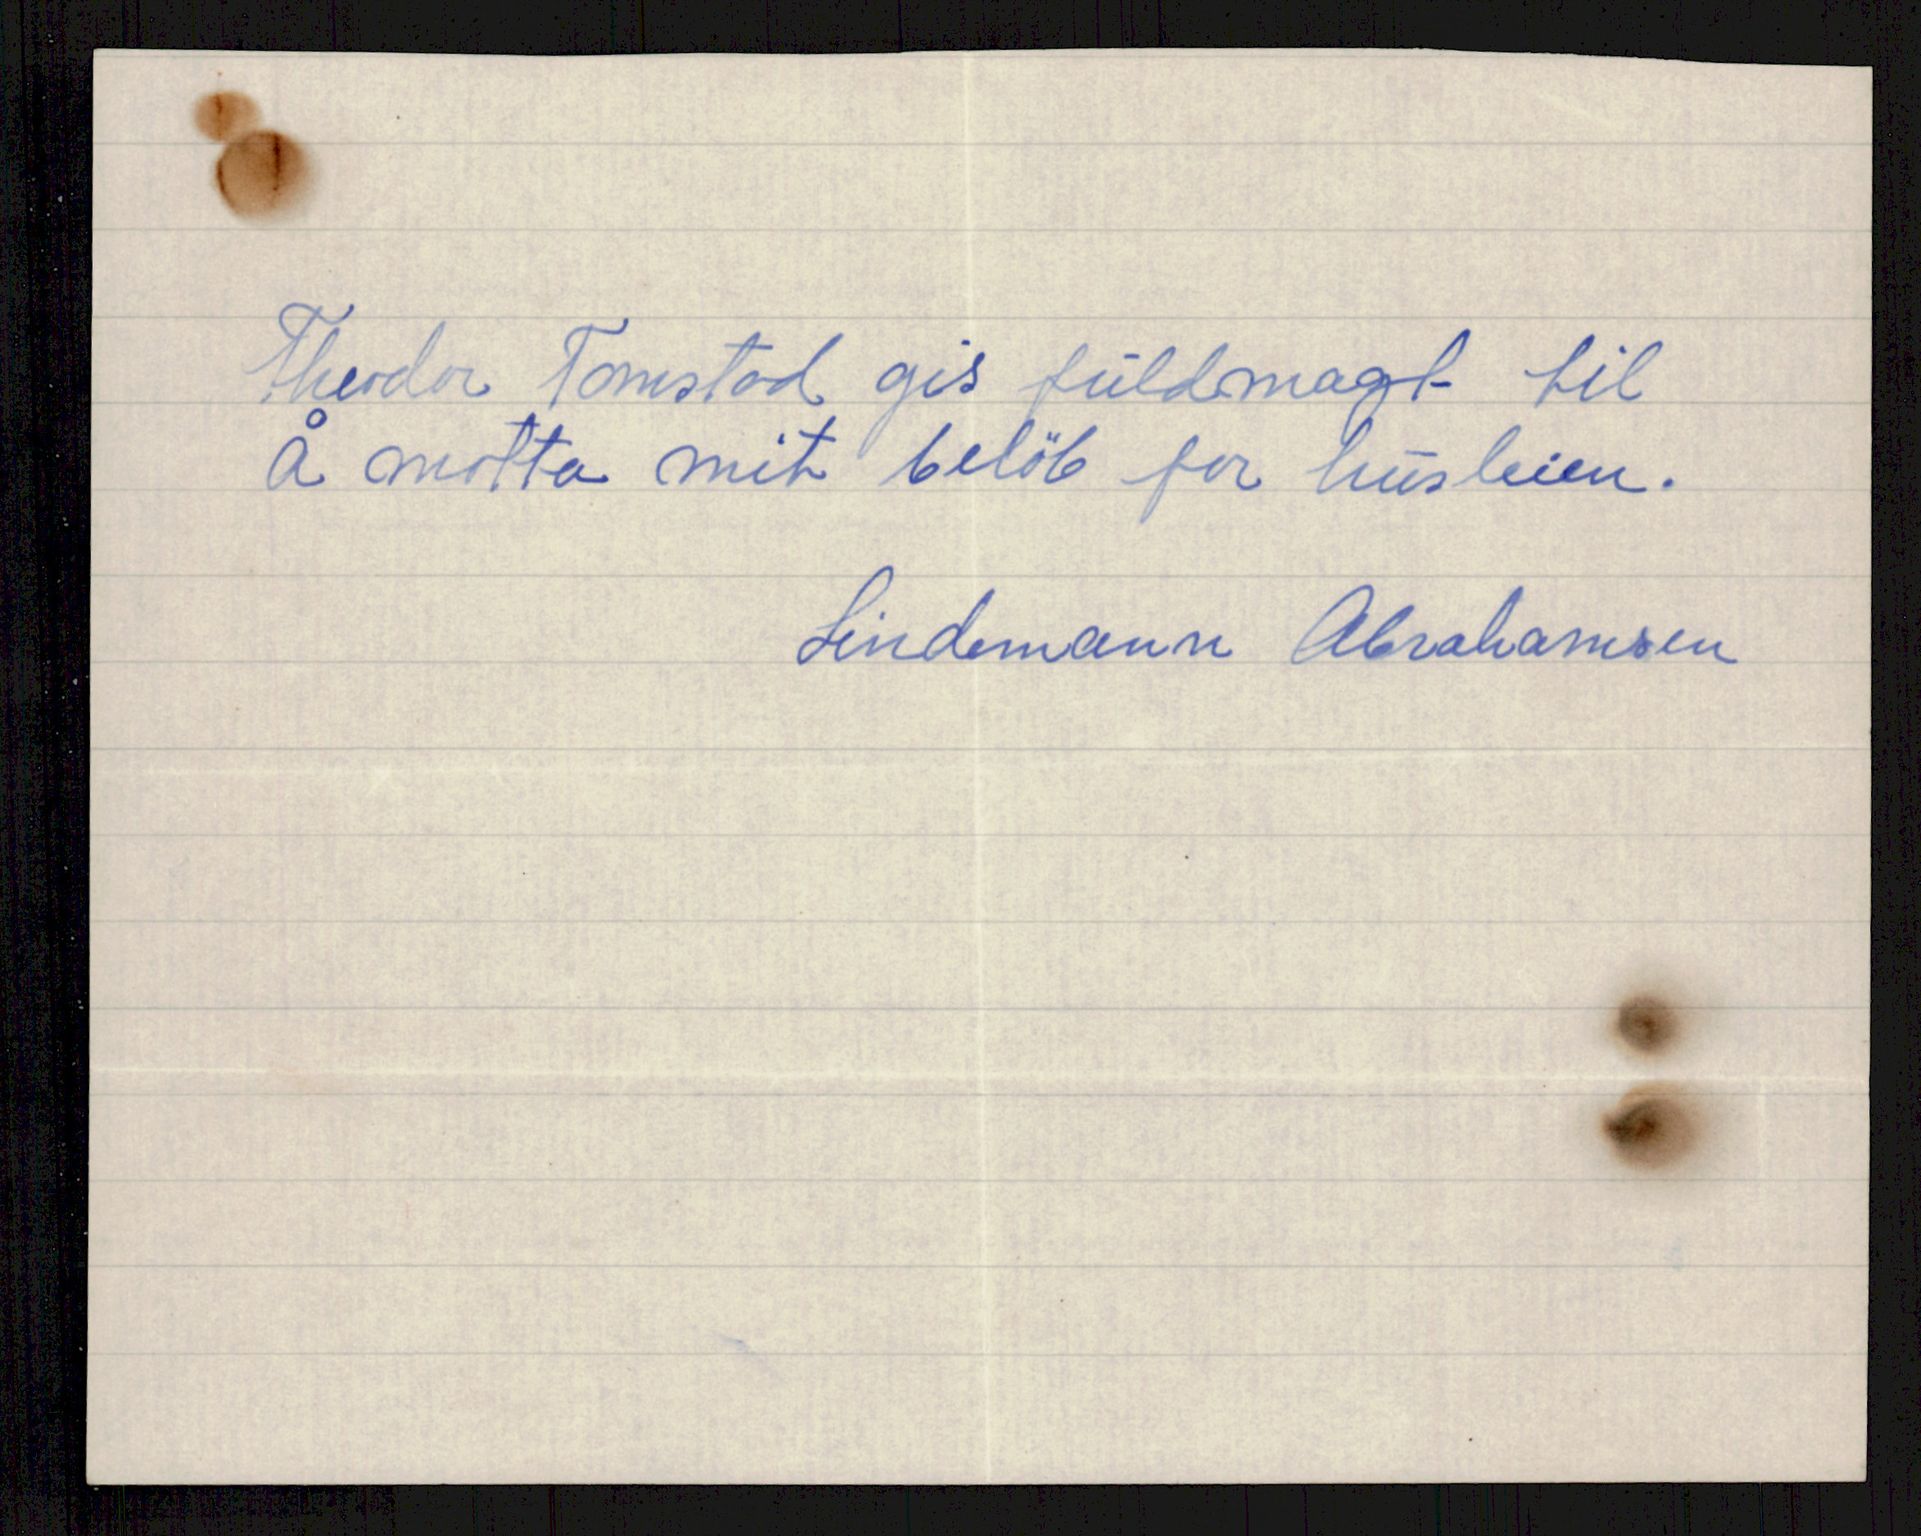 Theodor Tomstad gis fuldmagt til
å motta mit belöb for husleien.
Lindemann Abrahamsen